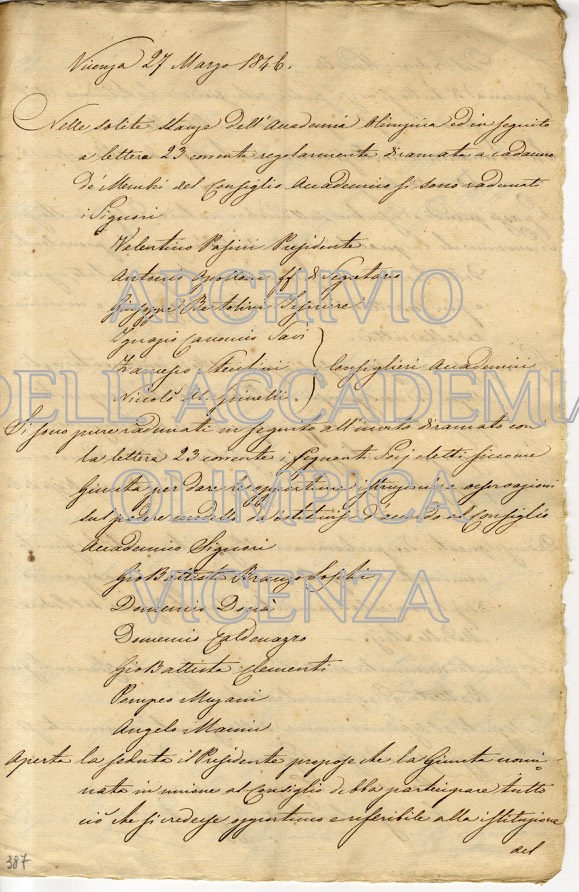 Vicenza 27 Marzo 1846.
Nelle solite stanze dell'Accademia Olimpica ed in seguito
a lettera 23 corrente regolarmente diramata a cadauno
de' Membri del Consiglio Accademico si sono radunati
i Signori
Valentino Pasini Presidente
Antonio ff di Segretario
Giuseppe Bertolini
Ignazio Canonico Savi
Francesco
Nicolò
Consiglieri Accademici
Si sono pure radunati in seguito all'invito diramato con
la lettera 23 corrente i seguenti Soci eletti siccome
Giunta per dare le opportune istruzioni e osservazioni
sul podere modello d'accordo al Consiglio
Accademico Signori
Gio Battista Franco
Domenico
Domenico Caldonazzo
Gio Battista Clementi
Pompeo
Angelo
Aperta la seduta il Presidente propose che la Giunta nomi-
nata in unione al Consiglio debba partecipare tutto
ciò che si credesse opportuno e riferibile alla istituzione
del
387
ARCHIVIO
DELL'ACCADEMIA
OLIMPICA
VICENZA